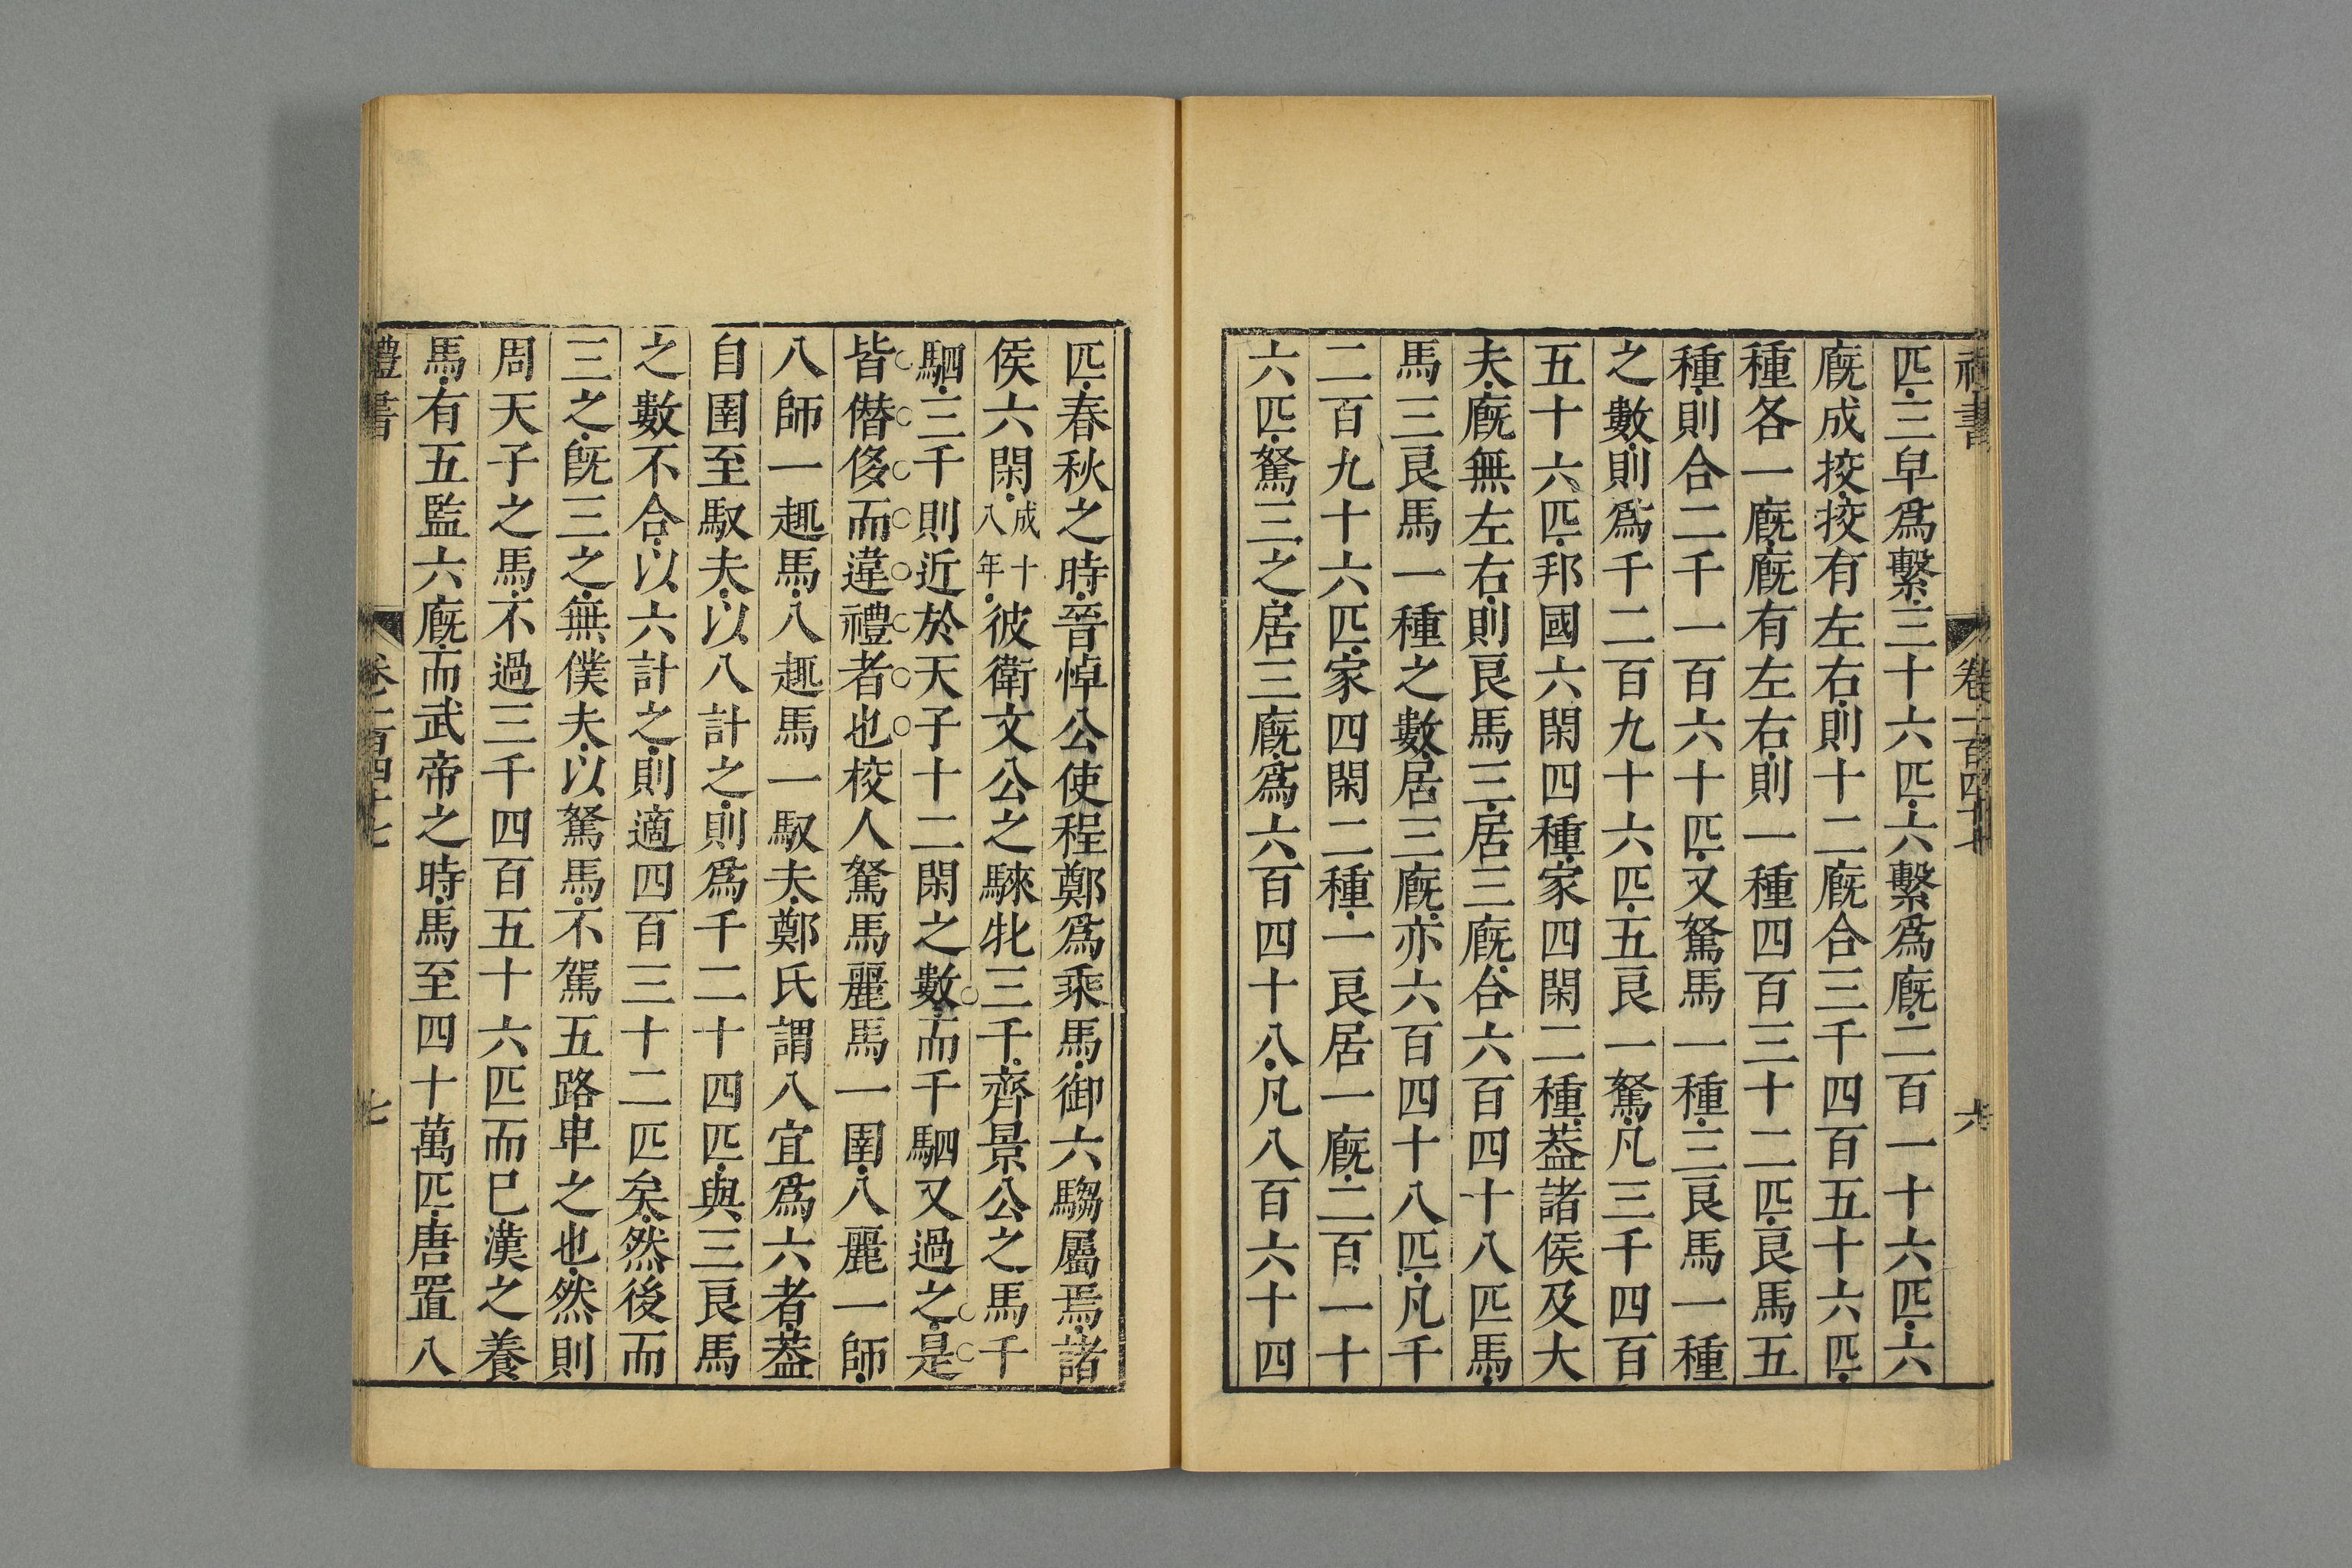 匹三皁爲繫三十六匹六繫爲廐二百一十六匹六
廐成挍挍有左右則十二廐合三千四百五十六匹
種各一廐廐有左右則一種四百三十二匹良馬五
種則合二千一百六十匹又駑馬一種三良馬一種
之數則爲千二百九十六匹五良一駑凡三千四百
五十六匹邦國六閑四種家四閑二種葢諸侯及大
夫廐無左右則良馬三居三廐合六百四十八匹馬
馬三良馬一種之數居三廐亦六百四十八匹凡千
二百九十六匹家四閑二種一良居一廐二百一十
六匹駑三之居三廐爲六百四十八凡八百六十四
匹春秋之時晉悼公使程鄭爲乘馬御六騶屬焉諸
侯六閑成十八年彼衛文公之騋牝三千齊景公之馬千
駟三千則近於天子十二閑之數而千駟又過之是
皆僭侈而違禮者也校人駑馬麗馬一圉八麗一師
八師一趣馬八趣馬一馭夫鄭氏謂八宜爲六者葢
自圉至馭夫以八計之則爲千二十四匹與三良馬
之數不合以六計之則適四百三十二匹矣然後而
三之旣三之無僕夫以駑馬不駕五路車之也然則
周天子之馬不過三千四百五十六匹而已漢之養
馬有五監六廐而武帝之時馬至四十萬匹唐置八
禮書 卷一百四十七 七